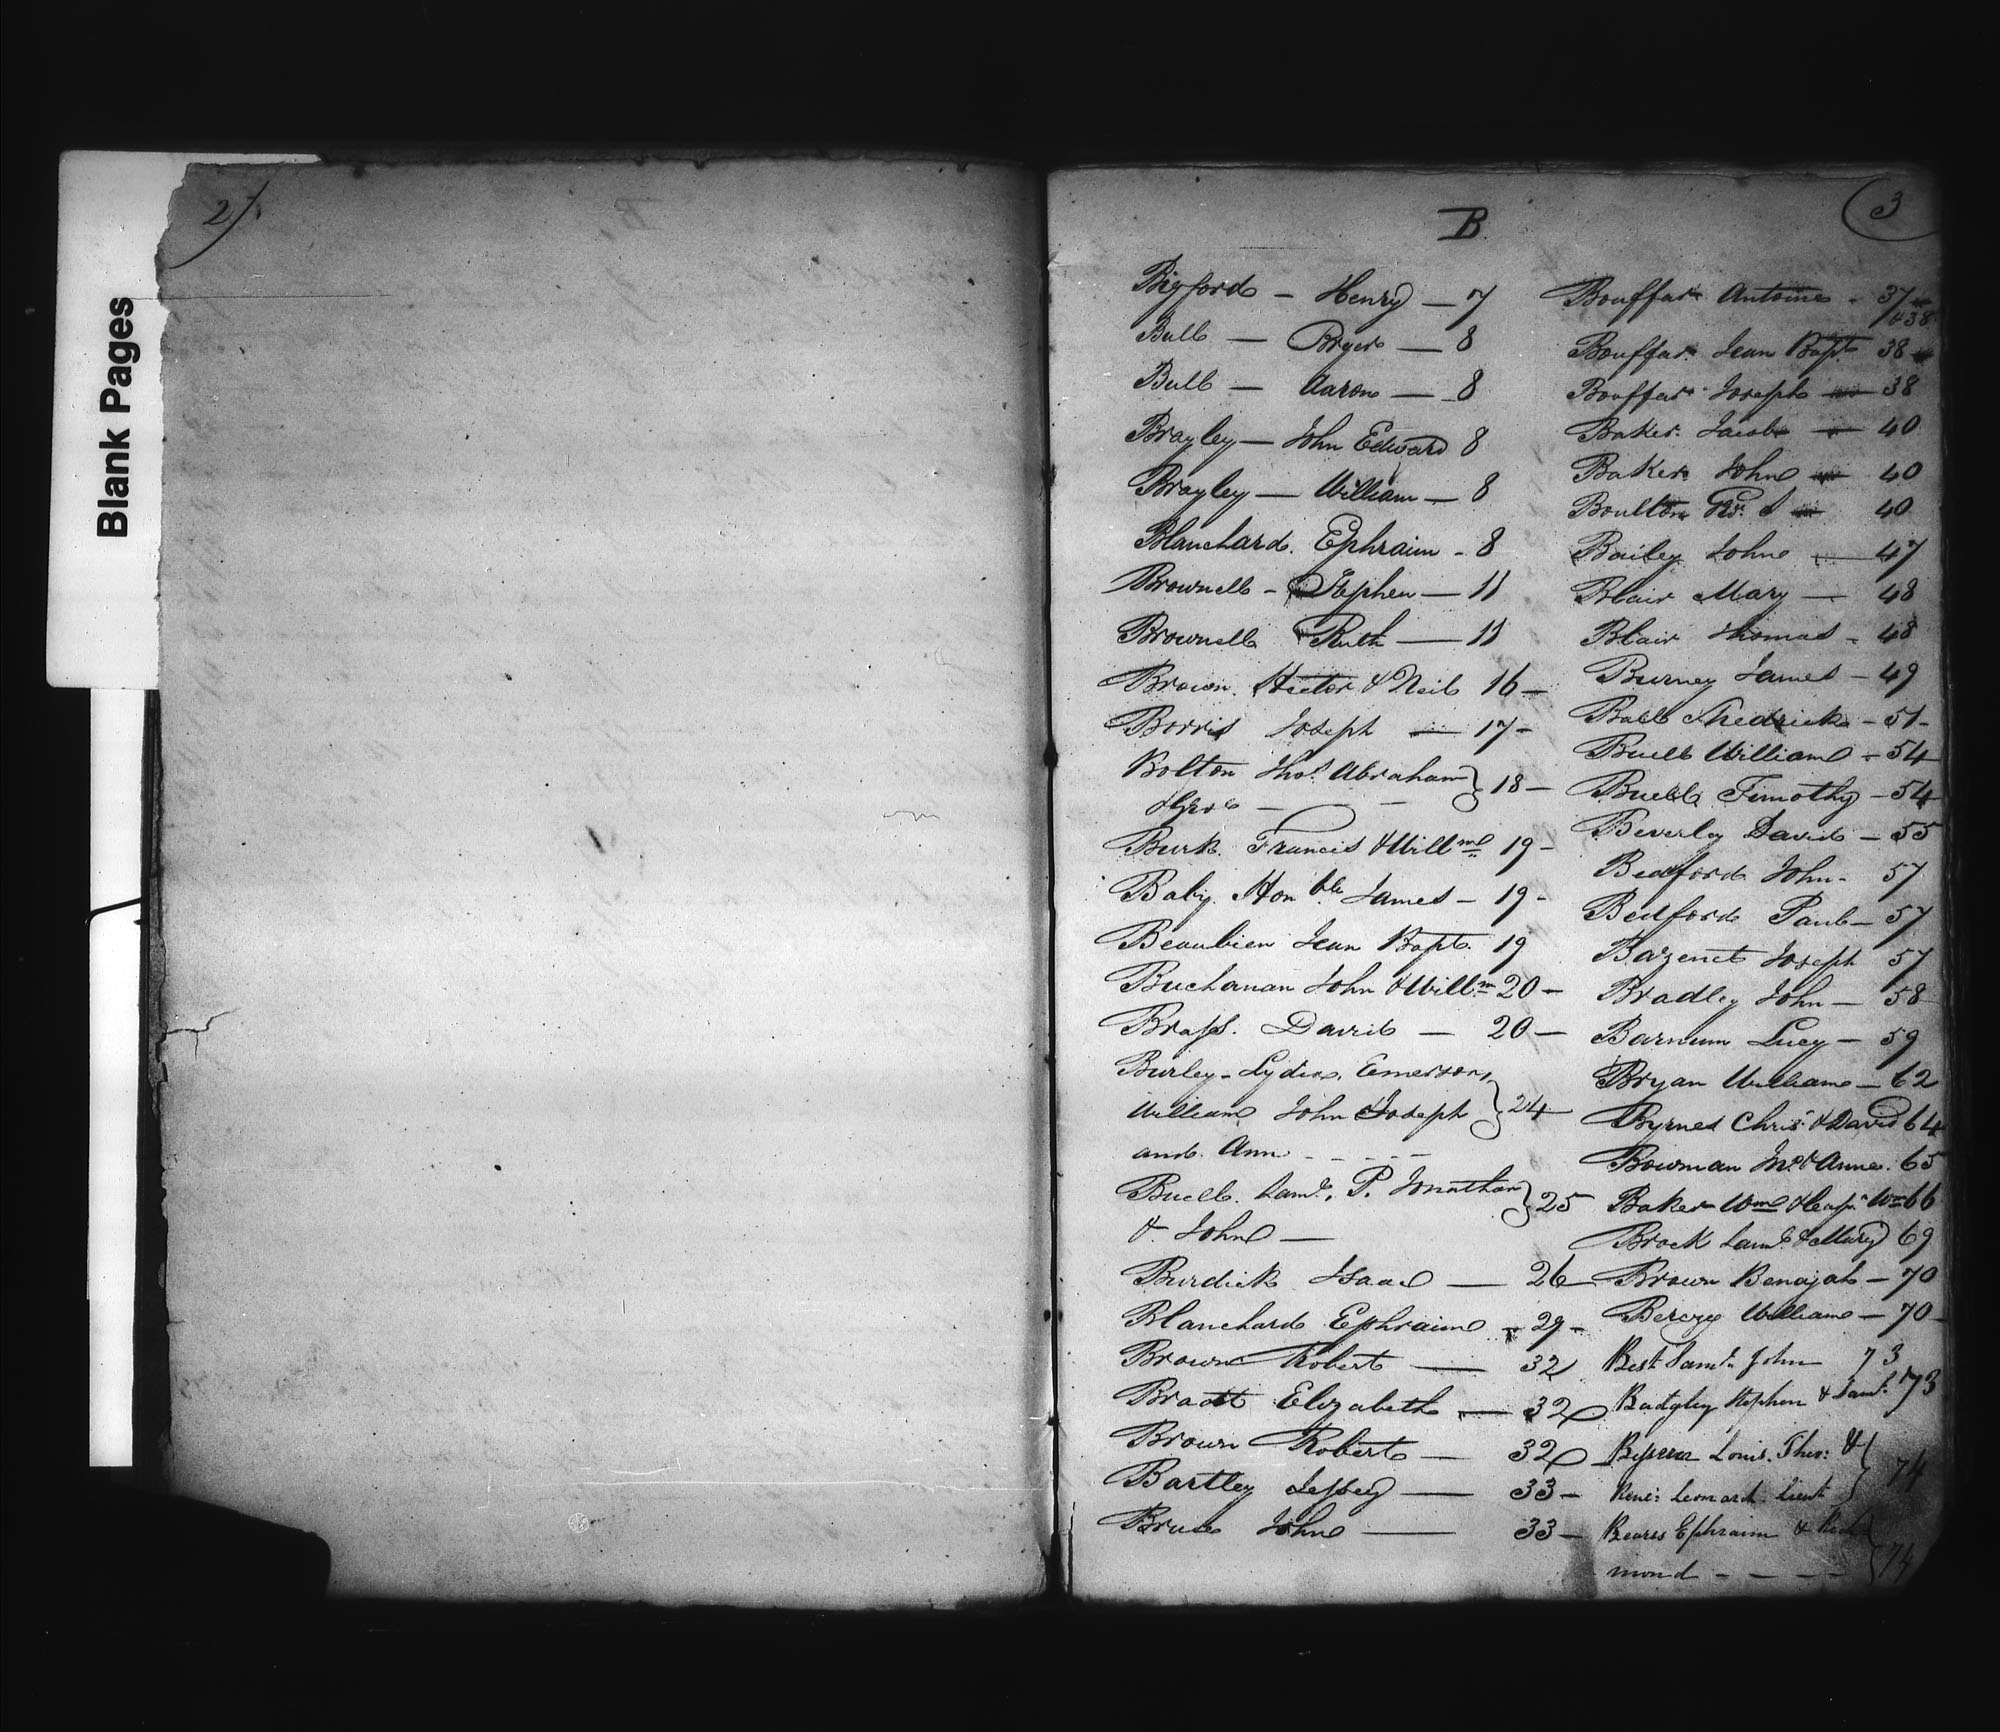 Blank Pages
2
3
B
Bigford - Henry - 7
Bull - Bryer - 8
Bull - Aaron - 8
Brayley - John Edward 8
Brayley - William - 8
Blanchard. Ephraim - 8
Brownell - Stephen - 11
Brownell Ruth - 11
Brown. Hector & Neil 16 -
Borris Joseph - 17 -
Bolton Thos. Abraham } 18 -
& Geo
Burk. Francis & Willm 19 -
Baby. Honble James - 19 -
Beaubien Jean Bapt. 19
Buchanan John & Willm 20 -
Brass. David - 20 -
Burley - Lydia, Emerson,
William John & Joseph } 24
and Ann - - - - -
Buell. Saml. P. Jonathan } 25
& John -
Burdick Isaac - 26
Blanchard Ephraim - 29 -
Brown Robert - 32
Bradt Elizabeth - 32
Brown Robert - 32
Bartley Jessey - 33 -
Bruce John - 33 -
Bouffar Antoine - 37
& 38
Bouffar Jean Bapt 38
Bouffar Joseph 38
Baker Jacob 40
Baker John 40
Boulton 40
Bailey John 47
Blair Mary - 48
Blair Thomas - 48
Burney James - 49
Ball Shedrick - 51 -
Buell William - 54
Buell Timothy - 54
Beverley David - 55
Bedford John - 57
Bedford Paul - 57
Bazenet Joseph 57
Bradley John - 58
Barnum Lucy - 59
Bryan William - 62
Byrnes Chris. & David 64
Bowman Jno. & Anne. 65
Baker Wm & Wm 66
Brock Saml. & Mary 69
Brown Benajah - 70
Berczy William - 70 -
Best Saml. John 73
Badgley Stephen & Saml. 173
Louis. Theo: &
René: Leonard. Lieut } 74
Bearss Ephraim & Rich
mond - - - - } 74